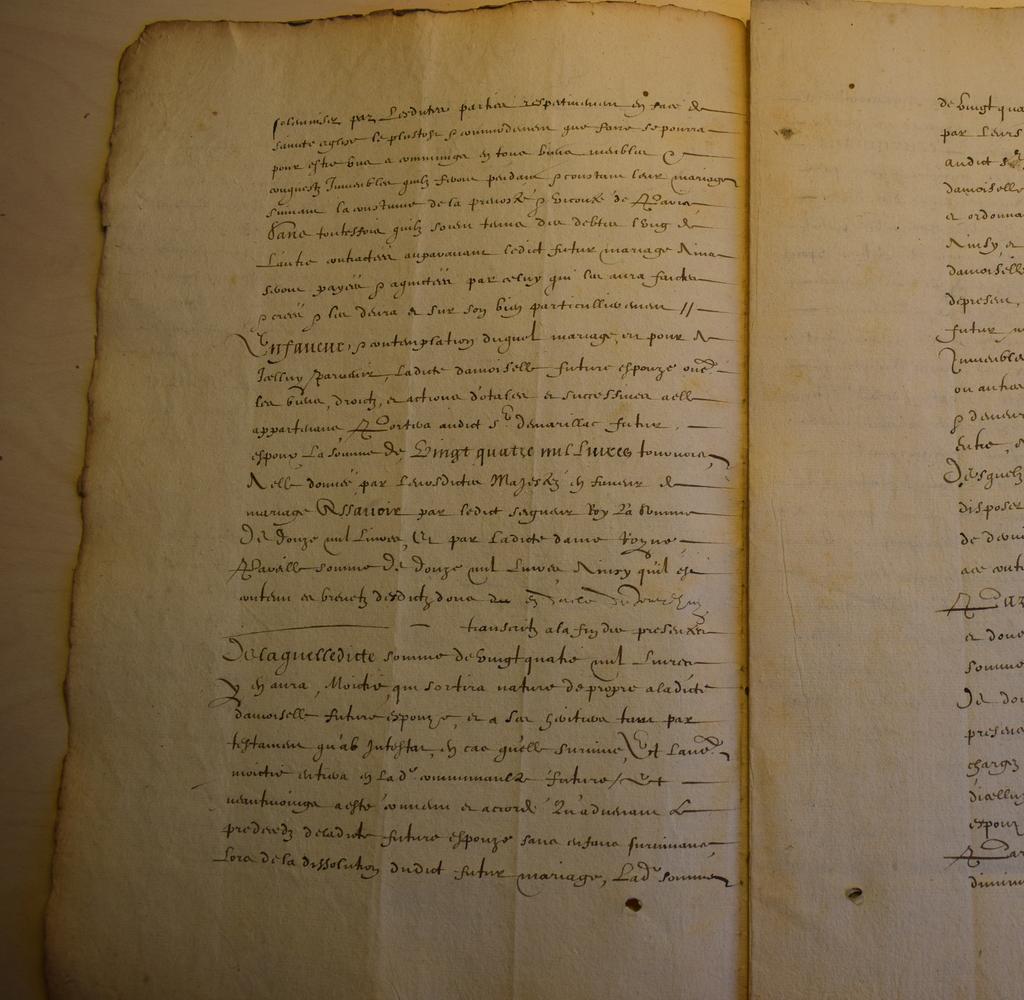 solemniser par lesdictes parties respectivement en face de
saincte eglise le plustost & commodement que faire se pourra
pour estre ung & communs en tous biens meubles &
conquestz Immeubles quilz feront pendant & constant leur mariage
suivant la coustume de la prevosté & viconté de Paris
Sans toutesfois quilz soient tenus des debtes l'ung de
L'autre contractées auparavant ledict futur mariage Ains
seront payées & aquictées par celuy qui les aura faictes
& créés & les devra et sur son bien particullierement //
En faveur, & contemplation duquel mariage, et pour A
Icelluy parvenir, Ladicte damoiselle future espouze oul.
les biens, droictz, et actions dotales et successives a elle
appartenans Portera audict Sr. de marillac futur,
espoux La somme de Vingt quatre mil Livres tournois,
A elle donnée par Leursdictes Majestez en faveur de
mariage Assavoir par ledict seigneur Roy La somme
De Douze mil Livres, Et par Ladicte dame Royne
Pareille somme De Douze mil Livres Ainsy quil est
contenu es brevetz desdictz dons
transcritz a la fin des presentes
De laquelledicte somme de vingt quatre mil Livres
y en aura, Moictié, qui sortira nature de propre a ladicte
damoiselle future espouze, et a ses heritiers tant par
testament qu'ab Intestat, en cas quelle survive, Et Laul.
moictié entrera en Lad. communaulté future / Et
neantmoings a esté convenu et accordé Qu'advenant Le
predecedz deladicte future espouze sans enfans survivans,
Lors de la dissolution dudict futur mariage, Lad. somme
de vingt qua
par Leurs
audict S
damoiselle
et ordonna
Ainsy, et
damoiselle
depresent,
futur
Immeuble
ou autres
& demeur
entre,
Desquelz
disposer
de
Par
et
somme
De dou
presen
charges
dicelluy
espoux
Par
diminu